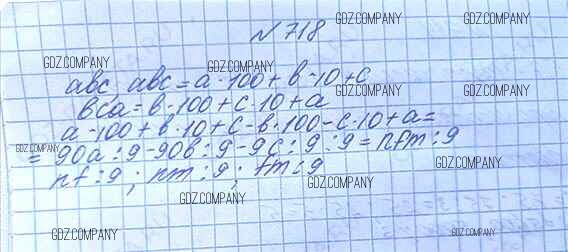 № 718
abc, abc = a · 100 + b · 10 + c
bca = b · 100 + c · 10 + a
a · 100 + b · 10 + c - b · 100 - c · 10 + a =
= 90a : 9 - 90b : 9 - 9c : 9 : 9 = nfm : 9
nf : 9 ; nm : 9 ; fm : 9
GDZ.COMPANY
GDZ.COMPANY
GDZ.COMPANY
GDZ.COMPANY
GDZ.COMPANY
GDZ.COMPANY
GDZ.COMPANY
GDZ.COMPANY
GDZ.COMPANY
GDZ.COMPANY
GDZ.COMPANY
GDZ.COMPANY
GDZ.COMPANY